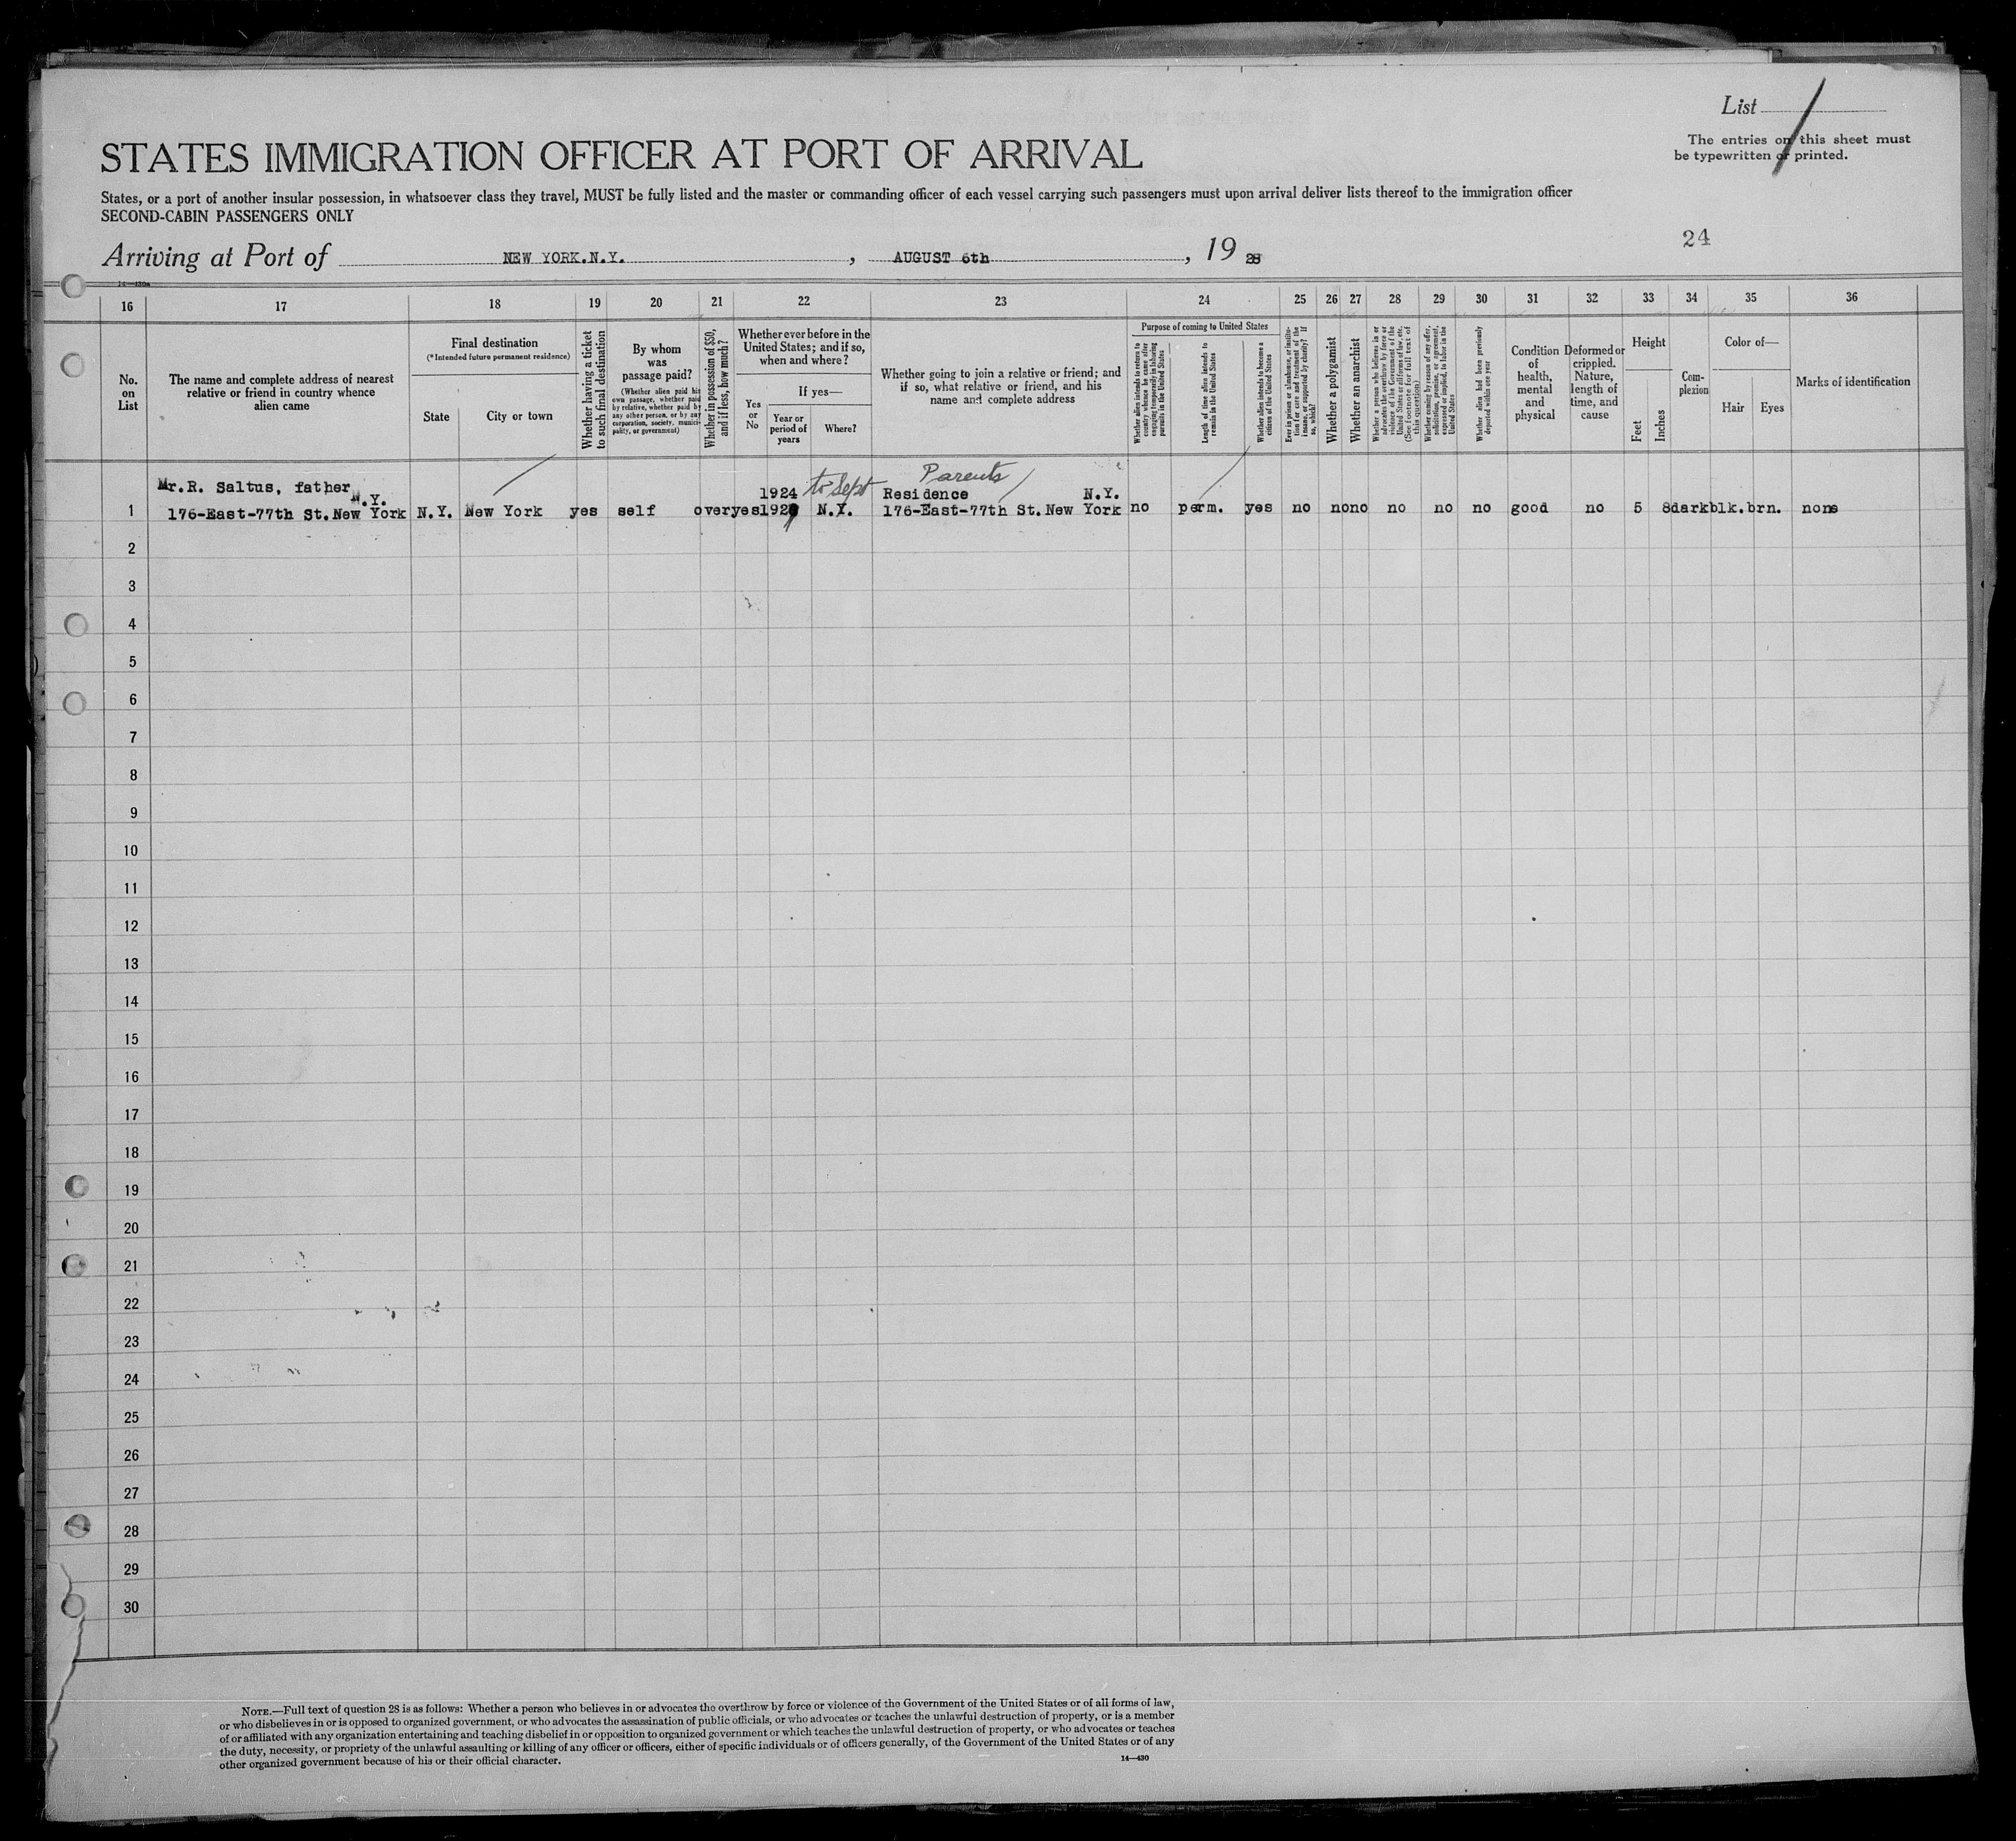 List /
The entries on this sheet must
be typewritten or printed.
STATES IMMIGRATION OFFICER AT PORT OF ARRIVAL
States, or a port of another insular possession, in whatsoever class they travel, MUST be fully listed and the master or commanding officer of each vessel carrying such passengers must upon arrival deliver lists thereof to the immigration officer
SECOND-CABIN PASSENGERS ONLY
24
Arriving at Port of NEW YORK.N.Y. , AUGUST 6th , 19 28
14—430a
16 17 18 19 20 21 22 23 24 25 26 27 28 29 30 31 32 33 34 35 36
No.
on
List
The name and complete address of nearest
relative or friend in country whence
alien came
Final destination
(*Intended future permanent residence)
State
City or town
Whether having a ticket
to such final destination
By whom
was
passage paid?
(Whether alien paid his
own passage, whether paid
by relative, whether paid by
any other person, or by any
corporation, society, munici-
pality, or government)
Whether in possession of $50,
and if less, how much?
Whether ever before in the
United States; and if so,
when and where?
Yes
or
No
If yes—
Year or
period of
years
Where?
Whether going to join a relative or friend; and
if so, what relative or friend, and his
name and complete address
Purpose of coming to United States
Whether alien intends to return to
country whence he came after
engaging temporarily in laboring
pursuits in the United States
Length of time alien intends to
remain in the United States
Whether alien intends to become a
citizen of the United States
Ever in prison or almshouse, or institu-
tion for care and treatment of the
insane, or supported by charity? If
so, which?
Whether a polygamist
Whether an anarchist
Whether a person who believes in or
advocates the overthrow by force or
violence of the Government of the
United States or all forms of law, etc.
(See footnote for full text of
this question)
Whether coming by reason of any offer,
solicitation, promise, or agreement,
expressed or implied, to labor in the
United States
Whether alien had been previously
deported within one year
Condition
of
health,
mental
and
physical
Deformed or
crippled.
Nature,
length of
time, and
cause
Height
Feet
Inches
Com-
plexion
Color of—
Hair
Eyes
Marks of identification
Parents
Mr.R. Saltus, father 1924 to Sept Residence N.Y.
N.Y.
1 176-East-77th St.New York N.Y. New York yes self over yes 192 N.Y. 176-East-77th St.New York no perm. yes no no no no no no good no 5 8 dark blk. brn. none
2
3
4
5
6
7
8
9
10
11
12
13
14
15
16
17
18
19
20
21
22
23
24
25
26
27
28
29
30
NOTE.—Full text of question 28 is as follows: Whether a person who believes in or advocates the overthrow by force or violence of the Government of the United States or of all forms of law,
or who disbelieves in or is opposed to organized government, or who advocates the assassination of public officials, or who advocates or teaches the unlawful destruction of property, or is a member
of or affiliated with any organization entertaining and teaching disbelief in or opposition to organized government or which teaches the unlawful destruction of property, or who advocates or teaches
the duty, necessity, or propriety of the unlawful assaulting or killing of any officer or officers, either of specific individuals or of officers generally, of the Government of the United States or of any
other organized government because of his or their official character.
14—430